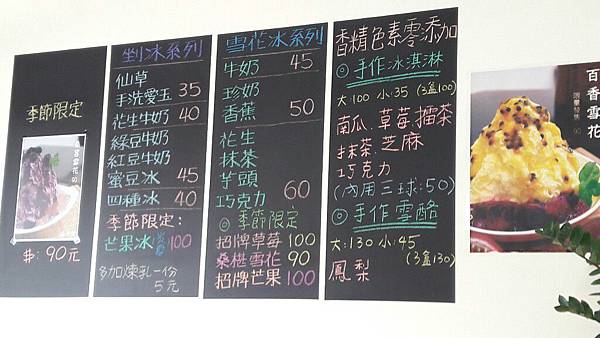 季節限定
井: 90元
剉冰系列
仙草
手洗愛玉 35
花生牛奶 40
綠豆牛奶
紅豆牛奶
蜜豆冰 45
四種冰 40
季節限定:
芒果冰 100
多加煉乳一份
5元
雪花冰系列
牛奶 45
珍奶
香蕉 50
花生
抹茶
芋頭
巧克力 60
◎季節限定
招牌草莓 100
桑椹雪花 90
招牌芒果 100
香精色素零添加
◎手作冰淇淋
大:100 小:35 (3盒100)
南瓜.草莓.擂茶
抹茶.芝麻
巧克力
(內用三球:50)
◎手作雪酪
大:130 小:45
(3盒130)
鳳梨
百香雪花